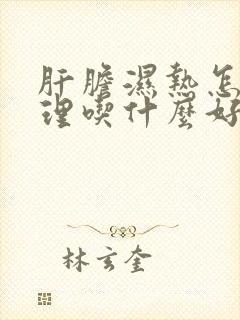 肝膽濕熱怎
理喫什麼好
林玄奎